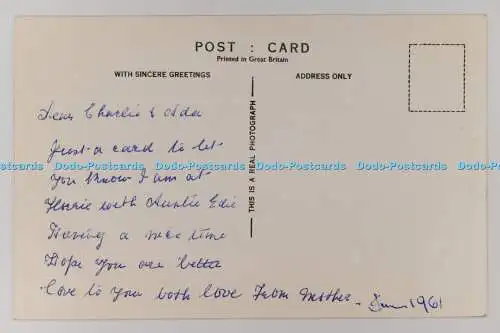 POST : CARD
Printed in Great Britain
WITH SINCERE GREETINGS
ADDRESS ONLY
THIS IS A REAL PHOTOGRAPH
Dear Charlie & Ada
Just a card to let
Dodo-Postcards Dodo-Postcards Dodo-Postcards Dodo-Postcards Dodo-Postcards Dodo-Postcards
you know I am at
with Auntie Edie
Having a nice time
Hope you are better
Love to you both love from Mother - June 1961